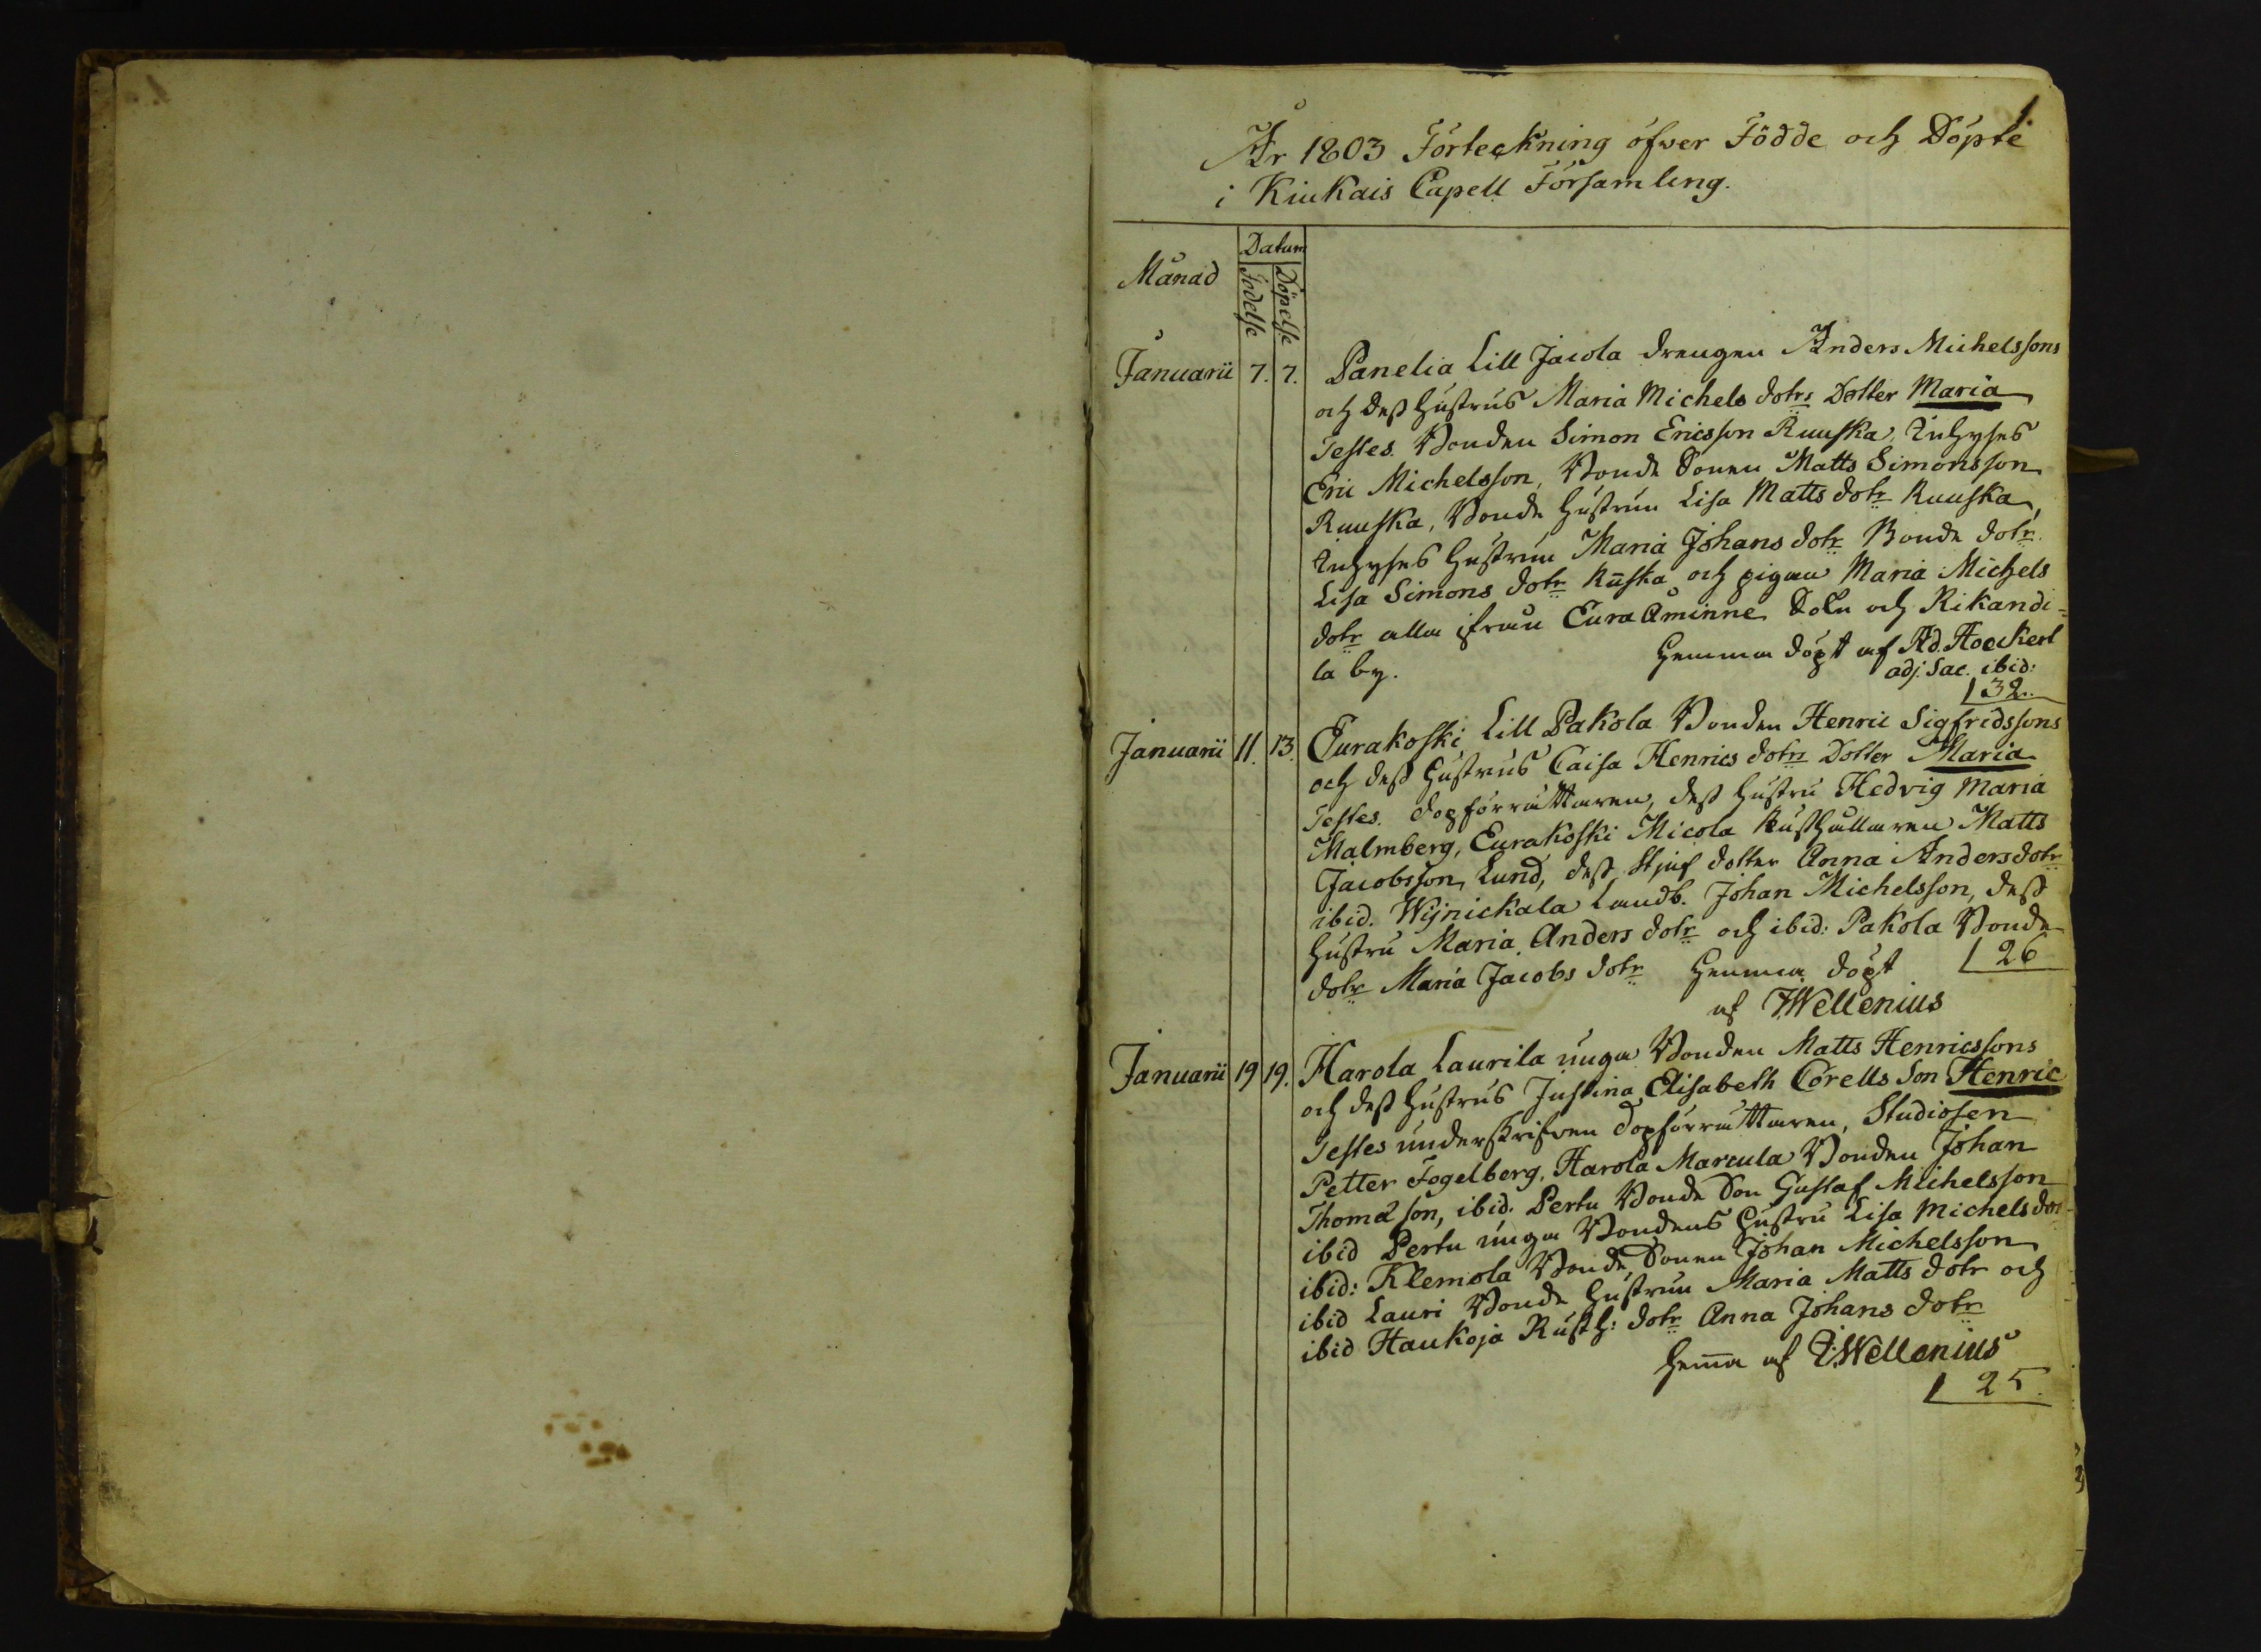 1.
År 1803 Förteckning öfver Födde och Döpte
i Kiukais Capell Församling.
Månad
Datum
Födelse
Döpelse
Januarii 7. 7. Panelia Lill Jacola drengen Anders Michelssons
och dess hustrus Maria Michels dotrs Dotter Maria
Testes. Bonden Simon Ericsson Ruuska, Inhyses
Eric Michelsson, Bonde Sonen Matts Simonsson
Ruuska, Bonde hustrun Lisa Matts dotr Ruuska,
Inhyses hustrun Maria Johans dotr Bonde dotr
Lisa Simons dotr Ruska och pigan Maria Michels
dotr alla ifrån Eura Åminne Sokn och Rikandi-
la by. hemma döpt af Ad. Hoeckert
adj. Sac. ibid:
32.
Januarii 11. 13. Eurakoski Lill Pakola Bonden Henric Sigfridssons
och dess hustrus Caisa Henrics dotrs Dotter Maria
Testes. dopförrättaren, dess hustru Hedvig Maria
Malmberg, Eurakoski Micola Rusthållaren Matts
Jacobsson Lund, dess Stjuf dotter Anna Anders dotr
ibid. Wijnickala Landb. Johan Michelsson, dess
hustru Maria Anders dotr och ibid: Pakola Bonde
dotr Maria Jacobs dotr hemma döpt 26
af I.Wellenius
Januarii 19 19. Harola Laurila unga Bonden Matts Henricssons
och dess hustrus Justina Elisabeth Corells Son Henric
Testes underskrifven dopförrättaren, Studiosen
Petter Fogelberg, Harola Marcula Bonden Johan
Thomasson, ibid: Pertu Bonde Son Gustaf Michelsson
ibid Pertu unga Bondens hustru Lisa Michels dotr
ibid: Klemola Bonde Sonen Johan Michelsson
ibid Lauri Bonde hustrun Maria Matts dotr och
ibid Haukoja Rusth: dotr Anna Johans dotr
hemma af I.Wellenius
25.